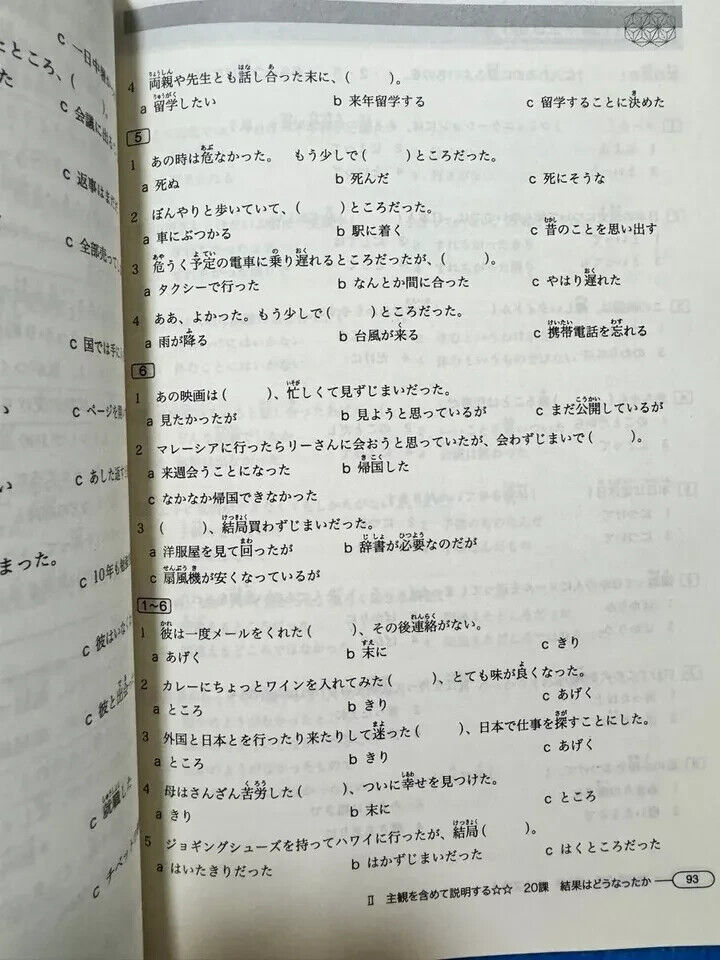 c 一日中
ところ、(
た
c 会議に出
c 返事はまだ
c 全部売って
c 国では手に
c ページを開
い
c あした返す
い
まった。
c 10年も勉
c 彼はいな
c 彼と出会
c 就職した
c チベット
4 両親や先生とも話し合った末に、(　　)。
a 留学したい　b 来年留学する　c 留学することに決めた
5
1 あの時は危なかった。 もう少しで(　　)ところだった。
a 死ぬ　b 死んだ　c 死にそうな
2 ぼんやりと歩いていて、(　　)ところだった。
a 車にぶつかる　b 駅に着く　c 昔のことを思い出す
3 危うく予定の電車に乗り遅れるところだったが、(　　)。
a タクシーで行った　b なんとか間に合った　c やはり遅れた
4 ああ、よかった。もう少しで(　　)ところだった。
a 雨が降る　b 台風が来る　c 携帯電話を忘れる
6
1 あの映画は(　　)、忙しくて見ずじまいだった。
a 見たかったが　b 見ようと思っているが　c まだ公開しているが
2 マレーシアに行ったらリーさんに会おうと思っていたが、会わずじまいで(　　)。
a 来週会うことになった　b 帰国した
c なかなか帰国できなかった
3 (　　)、結局買わずじまいだった。
a 洋服屋を見て回ったが　b 辞書が必要なのだが
c 扇風機が安くなっているが
1~6
1 彼は一度メールをくれた(　　)、その後連絡がない。
a あげく　b 末に　c きり
2 カレーにちょっとワインを入れてみた(　　)、とても味が良くなった。
a ところ　b きり　c あげく
3 外国と日本とを行ったり来たりして迷った(　　)、日本で仕事を探すことにした。
a ところ　b きり　c あげく
4 母はさんざん苦労した(　　)、ついに幸せを見つけた。
a きり　b 末に　c ところ
5 ジョギングシューズを持ってハワイに行ったが、結局(　　)。
a はいたきりだった　b はかずじまいだった　c はくところだった
II 主観を含めて説明する☆☆ 20課 結果はどうなったか 93